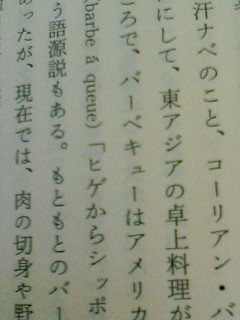 汗ナベのこと、コーリアン・バ
にして、東アジアの卓上料理が
ころで、バーベキューはアメリカ
(barbe à queue)「ヒゲからシッポ
う語源説もある。もともとのバー
あったが、現在では、肉の切身や野